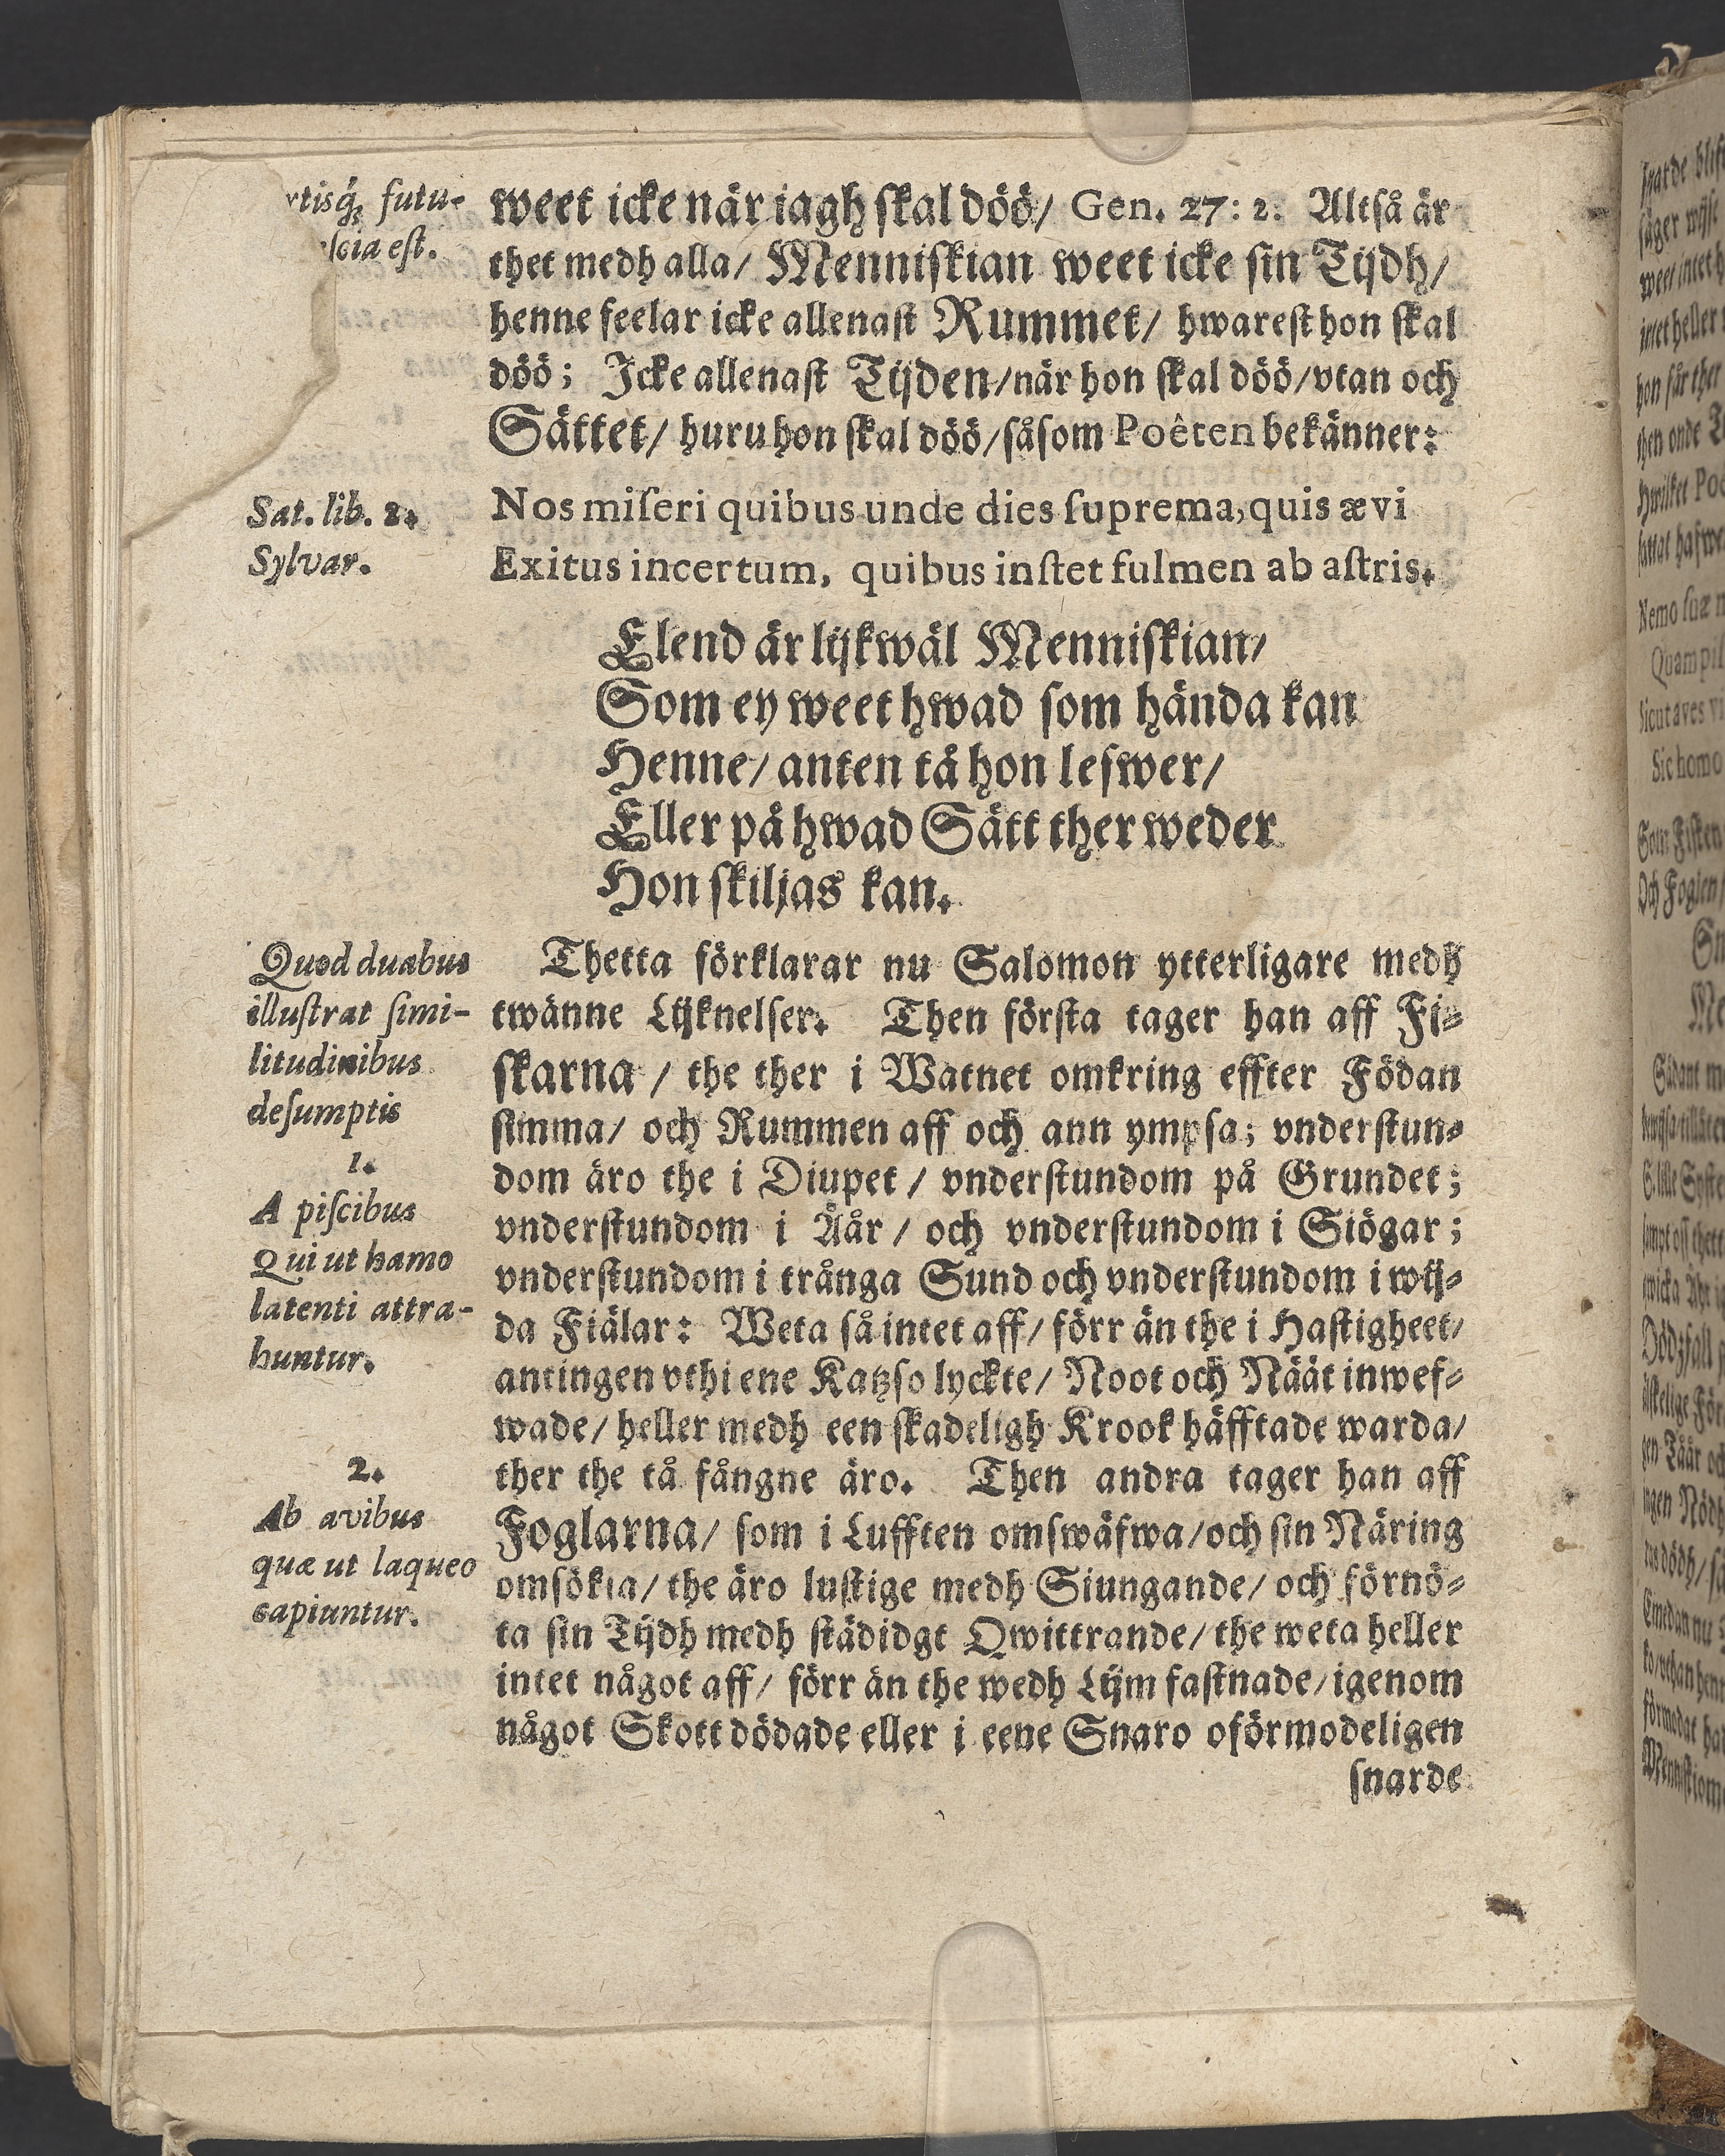 futu-
est.
weet icke när iagh skal döö/ Gen. 27: 2. Altså är
thet medh alla/ Menniskian weet icke sin Tijdh/
henne feelar icke allenast Rummet/ hwarest hon skal
döö; Icke allenast Tijden/när hon skal döö/vtan och
Sättet/ huru hon skal döö/såsom Poêten bekänner:
Sat. lib. 2.
Sylvar.
Nos miſeri quibus unde dies ſuprema, quis ævi
Exitus incertum, quibus inſtet fulmen ab aſtris.
Elend är lijkwäl Menniskian/
Som ey weet hwad som hända kan
Henne/ anten tå hon lefwer/
Eller på hwad Sätt ther weder
Hon skiljas kan.
Quod duabus
illuſtrat ſimi-
litudinibus
deſumptis
1.
A piſcibus
Qui ut hamo
latenti attra-
huntur.
2.
Ab avibus
quæ ut laqueo
capiuntur.
Thetta förklarar nu Salomon ytterligare medh
twänne Lijknelser. Then första tager han aff Fi-
skarna / the ther i Watnet omkring effter Födan
simma/ och Rummen aff och ann ympsa; vnderstun-
dom äro the i Diupet / vnderstundom på Grundet;
vnderstundom i Åår / och vnderstundom i Siögar;
vnderstundom i trånga Sund och vnderstundom i wij-
da Fiälar: Weta så intet aff/ förr än the i Hastigheet/
antingen vthi ene Katzso lyckte/ Noot och Näät inwef-
wade/ heller medh een skadeligh Krook häfftade warda/
ther the tå fångne äro. Then andra tager han aff
Foglarna/ som i Lufften omswäfwa/och sin Näring
omsökia/ the äro lustige medh Siungande/ och förnö-
ta sin Tijdh medh städidgt Qwittrande/ the weta heller
intet något aff/ förr än the wedh Lijm fastnade/igenom
något Skott dödade eller i eene Snaro oförmodeligen
snarde